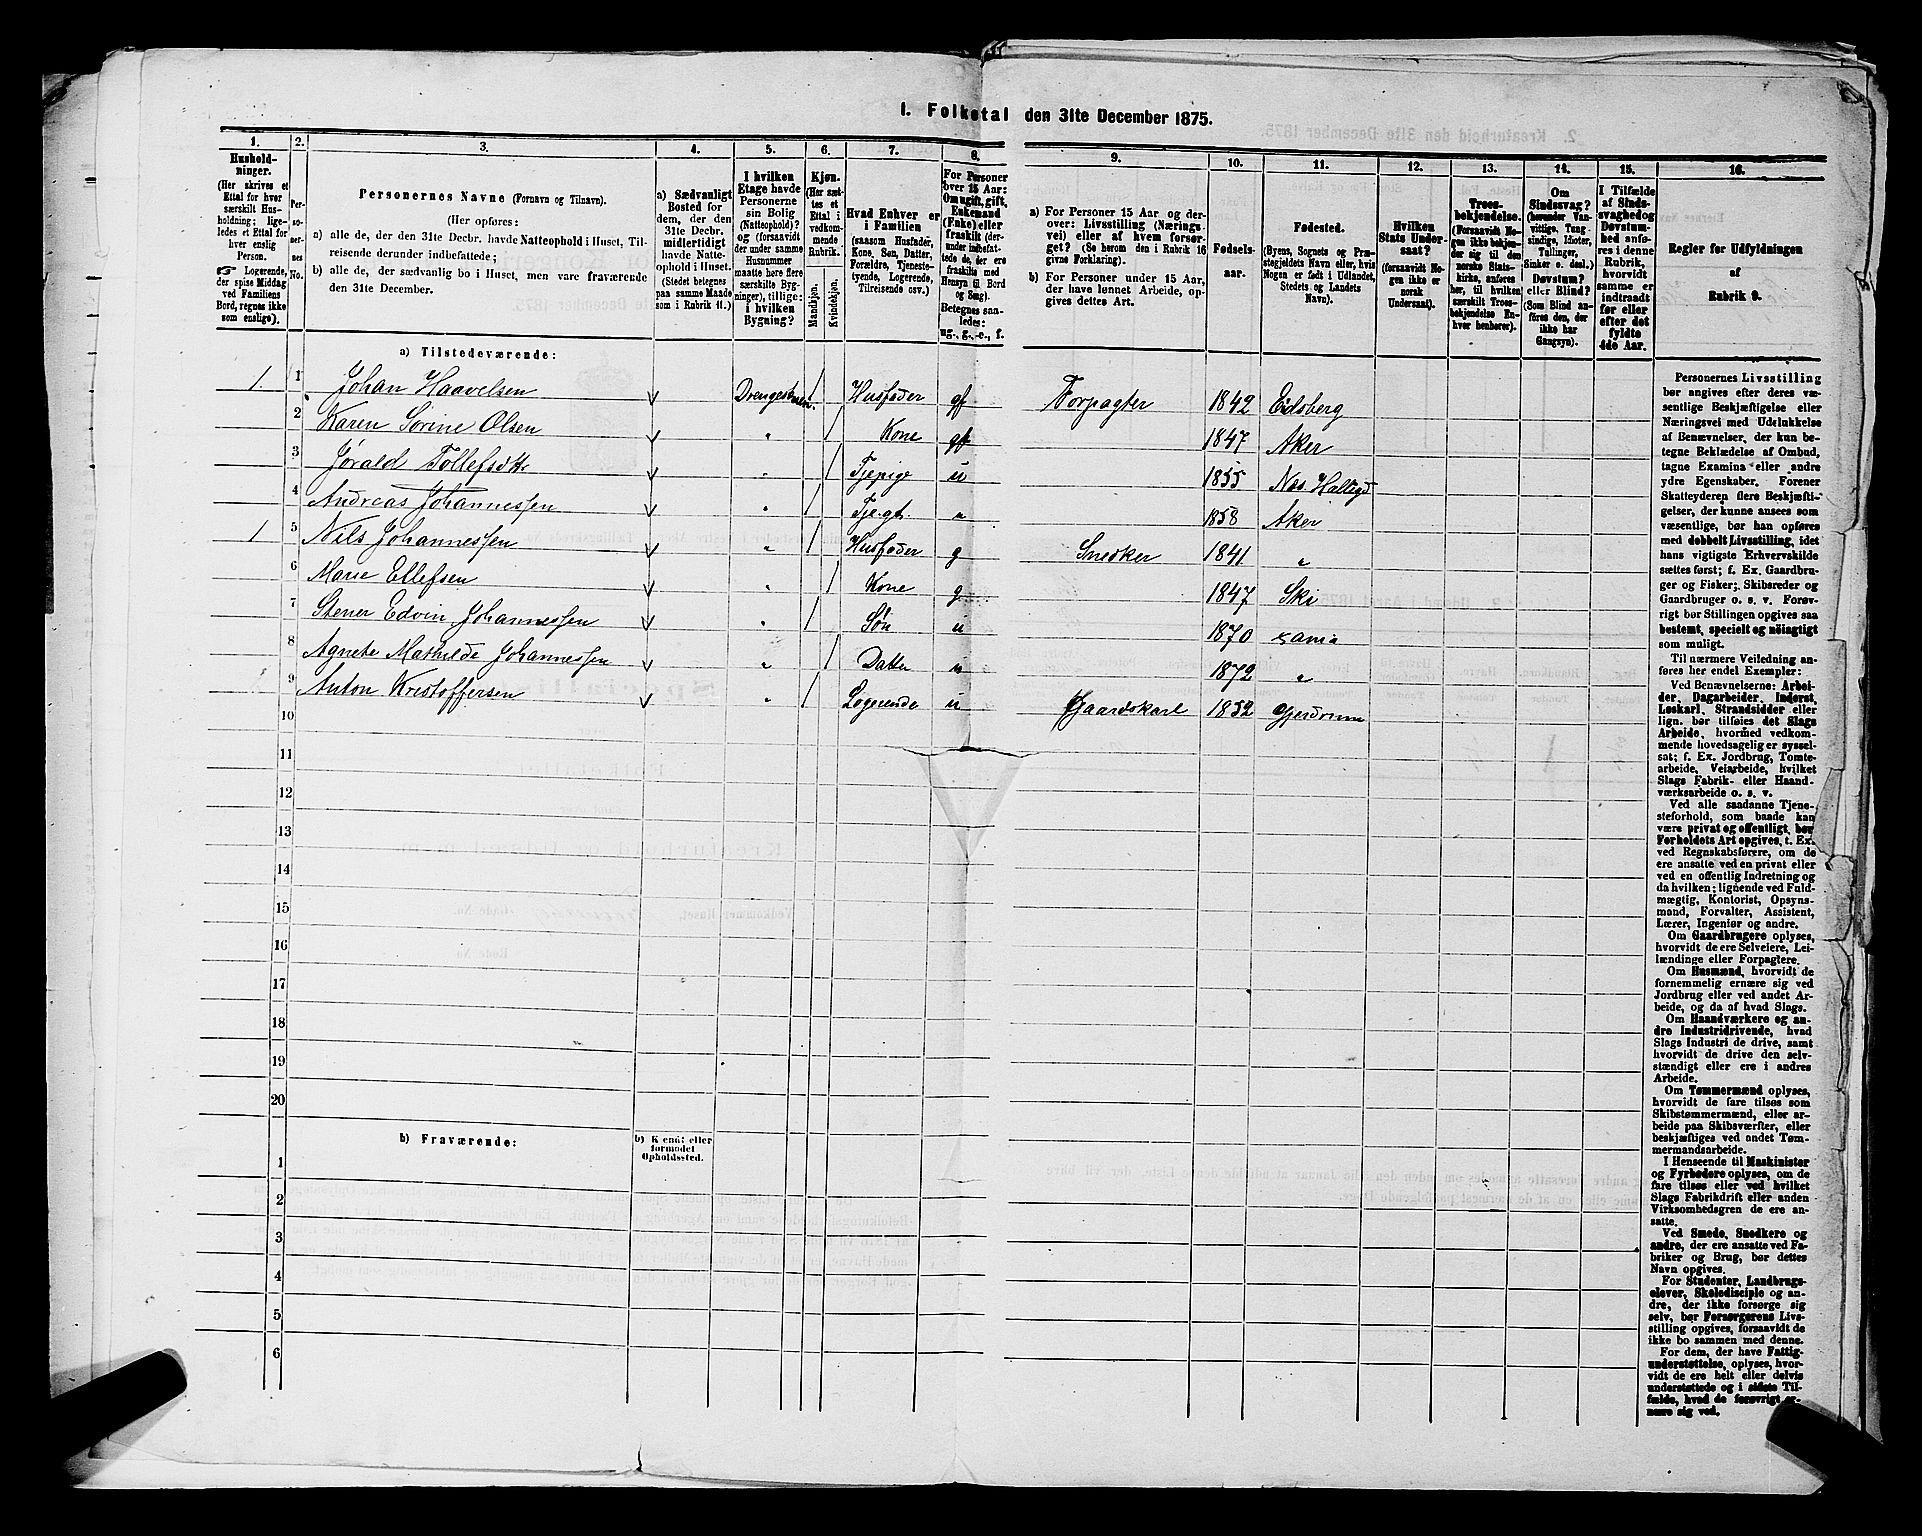 I. Folketal den 31te December 1875.
1. 2. 3. 4. 5. 6. 7. 8. 9. 10. 11. 12. 13. 14. 15. 16.
Hushold-
ninger.
(Her skrives et
Ettal for hver
særskilt Hus-
holdning; lige-
ledes et Ettal for
hver enslig
Person.
☞ Logerende,
der spise Middag
ved Familiens
Bord, regnes ikke
som enslige).
Per-
so-
ner-
nes
No.
Personernes Navne (Fornavn og Tilnavn).
(Her opføres:
a) alle de, der den 31te Decbr. havde Natteophold i Huset, Til-
reisende derunder indbefattede;
b) alle de, der sædvanlig bo i Huset, men vare fraværende
den 31te December.
a) Sædvanligt
Bosted for
dem, der den
31te Decbr.
midlertidigt
havde Natte-
ophold i Huset.
(Stedet betegnes
paa samme Maade
som i Rubrik 11.)
I hvilken
Etage havde
Personerne
sin Bolig
(Natteophold)?
og (forsaavidt
der under samme
Husnummer
maatte høre flere
særskilte Byg-
ninger), tillige:
i hvilken
Bygning?
Kjøn.
(Her sæt-
tes et
Ettal i
vedkom-
mende
Rubrik.
Mandkjøn.
Kvindekjøn.
Hvad Enhver er
i Familien
(saasom Husfader,
Kone, Søn, Datter,
Forældre, Tjeneste-
tyende, Logerende,
Tilreisende osv.)
For Personer
over 15 Aar:
Om ugift, gift,
Enkemand
(Enke) eller
fraskilt (der-
under indbefat-
tede de, der ere
fraskilte med
Hensyn til Bord
og Seng).
Betegnes saa-
ledes:
ug., g., e., f.
a) For Personer 15 Aar og der-
over: Livsstilling (Nærings-
vei) eller af hvem forsør-
get? (Se herom den i Rubrik 16
givne Forklaring).
b) For Personer under 15 Aar,
der have lønnet Arbeide, op-
gives dettes Art.
Fødsels-
aar.
Fødested.
(Byens, Sognets og Præ-
stegjeldets Navn eller, hvis
Nogen er født i Udlandet,
Stedets og Landets
Navn).
Hvilken
Stats Under-
saat?
(forsaavidt No-
gen ikke er
norsk
Undersaat).
Troes-
bekjendelse.
(Forsaavidt No-
gen ikke bekjen-
der sig til den
norske Stats-
kirke, anføres
her, til hvilken
særskilt Troes-
bekjendelse En-
hver henhører).
Om
Sindssvag?
(herunder Van-
vittige, Tung-
sindige, Idioter,
Tullinger,
Sinker o. desl.)
Døvstum?
eller Blind?
(Som Blind an-
føres den, der
ikke har
Gangsyn).
I Tilfælde
af Sinds-
svaghed og
Døvstum-
hed anfø-
res i denne
Rubrik,
hvorvidt
samme er
indtraadt
før eller
efter det
fyldte
4de Aar.
Regler for Udfyldningen
af
Rubrik 9.
a) Tilstedeværende:
1 1 Johan Haavelsen v Drengestuen 1 Husfader gf Forpagter 1842 Eidsberg
2 Karen Sorine Olsen v " 1 Kone gf 1847 Aker
3 Jørald Tollefsdtr v " 1 Tjepige u 1855 Nes. Hallegd
4 Andreas Johannessen v " 1 Tje.gt. " 1858 Aker
1 5 Nils Johannessen v " 1 Husfader g Snedker 1841 "
6 Marie Ellefsen v " 1 Kone g 1847 Ski
7 Stener Edvin Johannessen v " 1 Søn u 1870 sama
8 Agnete Mathilde Johannessen v " 1 Datter u 1872 "
9 Anton Kristoffersen v " 1 Logerende u Gaardskarl 1852 Gjerdrum
10
11
12
13
14
15
16
17
18
19
20
b) Fraværende:
b) Kendt eller
formodet
Opholdssted.
1
2
3
4
5
6
Personernes Livsstilling
bør angives efter deres væ-
sentlige Beskjæftigelse eller
Næringsvei med Udelukkelse
af Benævnelser, der kun be-
tegne Beklædelse af Ombud,
tagne Examina eller andre
ydre Egenskaber. Forener
Skatteyderen flere Beskjæfti-
gelser, der kunne ansees som
væsentlige, bør han opføres
med dobbelt Livsstilling, idet
hans vigtigste Erhvervskilde
sættes først; f. Ex. Gaardbru-
ger og Fisker; Skibsreder og
Gaardbruger o. s. v. Forøv-
rigt bør Stillingen opgives saa
bestemt, specielt og nøiagtigt
som muligt.
Til nærmere Veiledning an-
føres her endel Exempler:
Ved Benævnelserne: Arbei-
der, Dagarbeider, Inderst,
Løskarl, Strandsidder eller
lign. bør tilføies det Slags
Arbeide, hvormed vedkom-
mende hovedsagelig er syssel-
sat; f. Ex. Jordbrug, Tomte-
arbeide, Veiarbeide, hvilket
Slags Fabrik- eller Haand-
værksarbeide o. s. v.
Ved alle saadanne Tjene-
steforhold, som baade kan
være privat og offentligt, bør
Forholdets Art opgives, t. Ex.
ved Regnskabsførere, om de
ere ansatte ved en privat eller
ved en offentlig Indretning og
da hvilken; lignende ved Fuld-
mægtig, Kontorist, Opsyns-
mand, Forvalter, Assistent,
Lærer, Ingeniør og andre.
Om Gaardbrugere oplyses,
hvorvidt de ere Selveiere, Lei-
lændinge eller Forpagtere.
Om Husmænd, hvorvidt de
fornemmelig ernære sig ved
Jordbrug eller ved andet Ar-
beide, og da af hvad Slags.
Om Haandværkere og an-
dre Industridrivende, hvad
Slags Industri de drive, samt
hvorvidt de drive den selv-
stændigt eller ere i andres
Arbeide.
Om Tømmermænd oplyses,
hvorvidt de fare tilsøs som
Skibstømmermænd, eller ar-
beide paa Skibsværfter, eller
beskjæftiges ved andet Tøm-
mermandsarbeide.
I Henseende til Maskinister
og Fyrbødere oplyses, om de
fare tilsøs eller ved hvilket
Slags Fabrikdrift eller anden
Virksomhedsgren de ere an-
satte.
Ved Smede, Snedkere og
andre, der ere ansatte ved Fa-
briker og Brug, bør dettes
Navn opgives.
For Studenter, Landbrugs-
elever, Skoledisciple og an-
dre, der ikke forsørge sig
selv, bør Forsørgerens Livs-
stilling opgives, forsaavidt de
ikke bo sammen med denne.
For dem, der have Fattig-
understøttelse, oplyses, hvor-
vidt de ere helt eller delvis
understøttede og i sidste Til-
fælde, hvad de forøvrigt er-
nære sig ved.